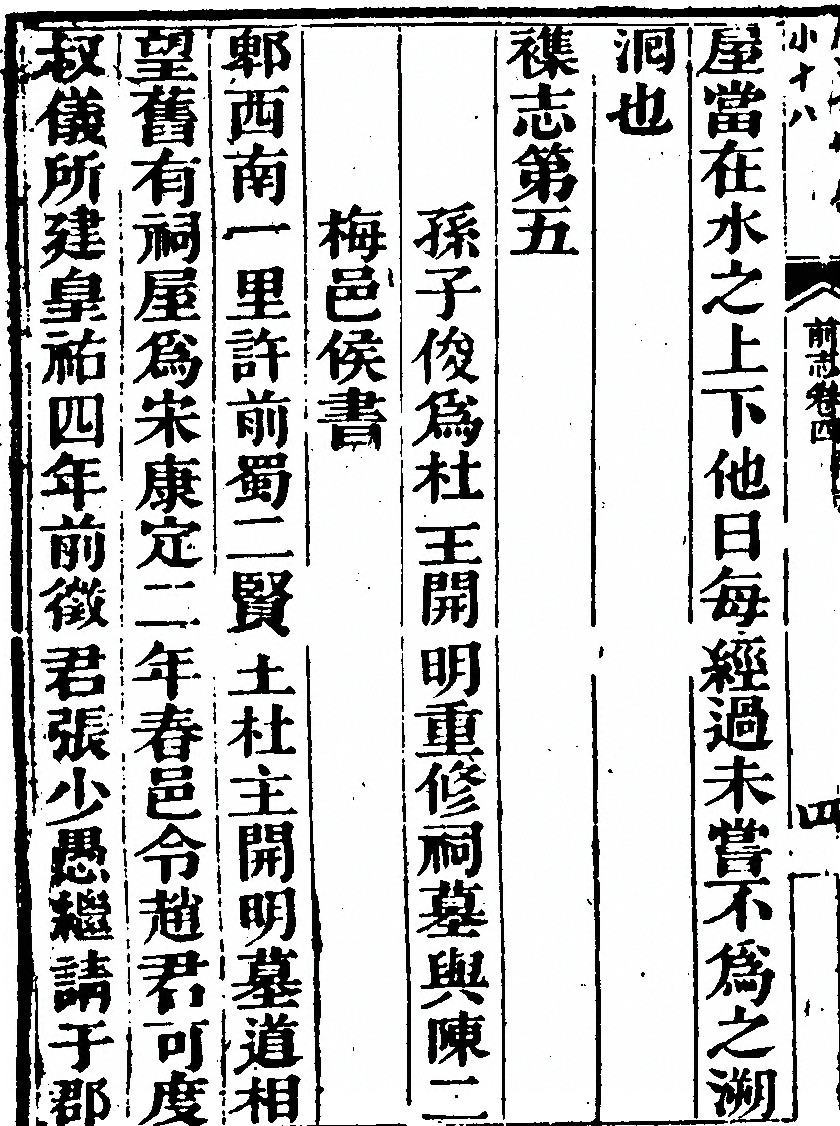 小十八
前志卷四
四
屋當在水之上下他日每經過未嘗不爲之溯
洄也
襍志第五
孫子俊爲杜王開明重修祠墓與陳二
梅邑侯書
郫西南一里許前蜀二賢土杜主開明墓道相
望舊有祠屋爲宋康定二年春邑令趙君可度
叔儀所建皇祐四年前徵君張少愚繼請于郡